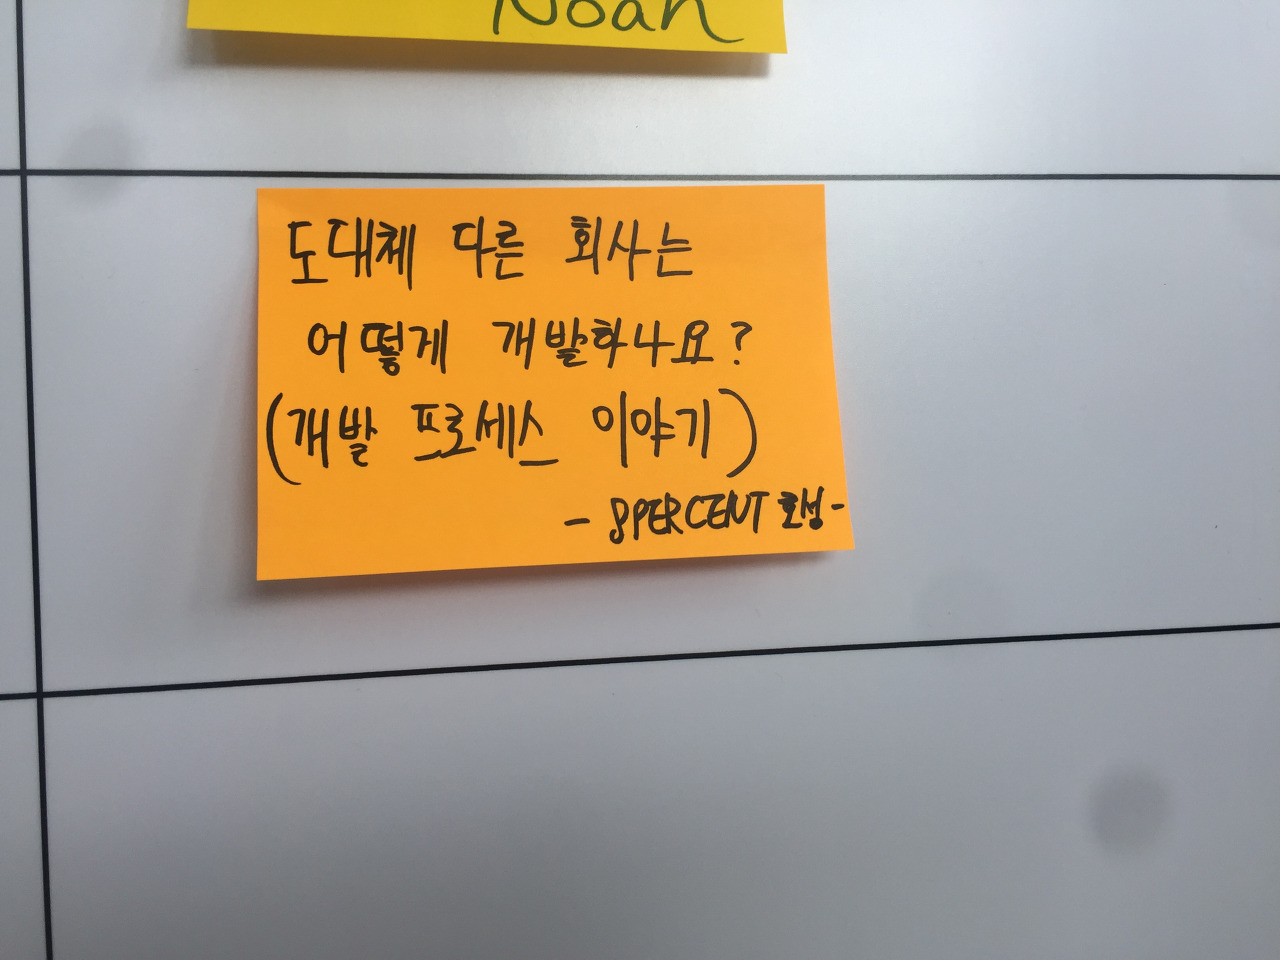 Noah
도대체 다른 회사는
어떻게 개발하나요?
(개발 프로세스 이야기)
- 8PERCENT 호성-